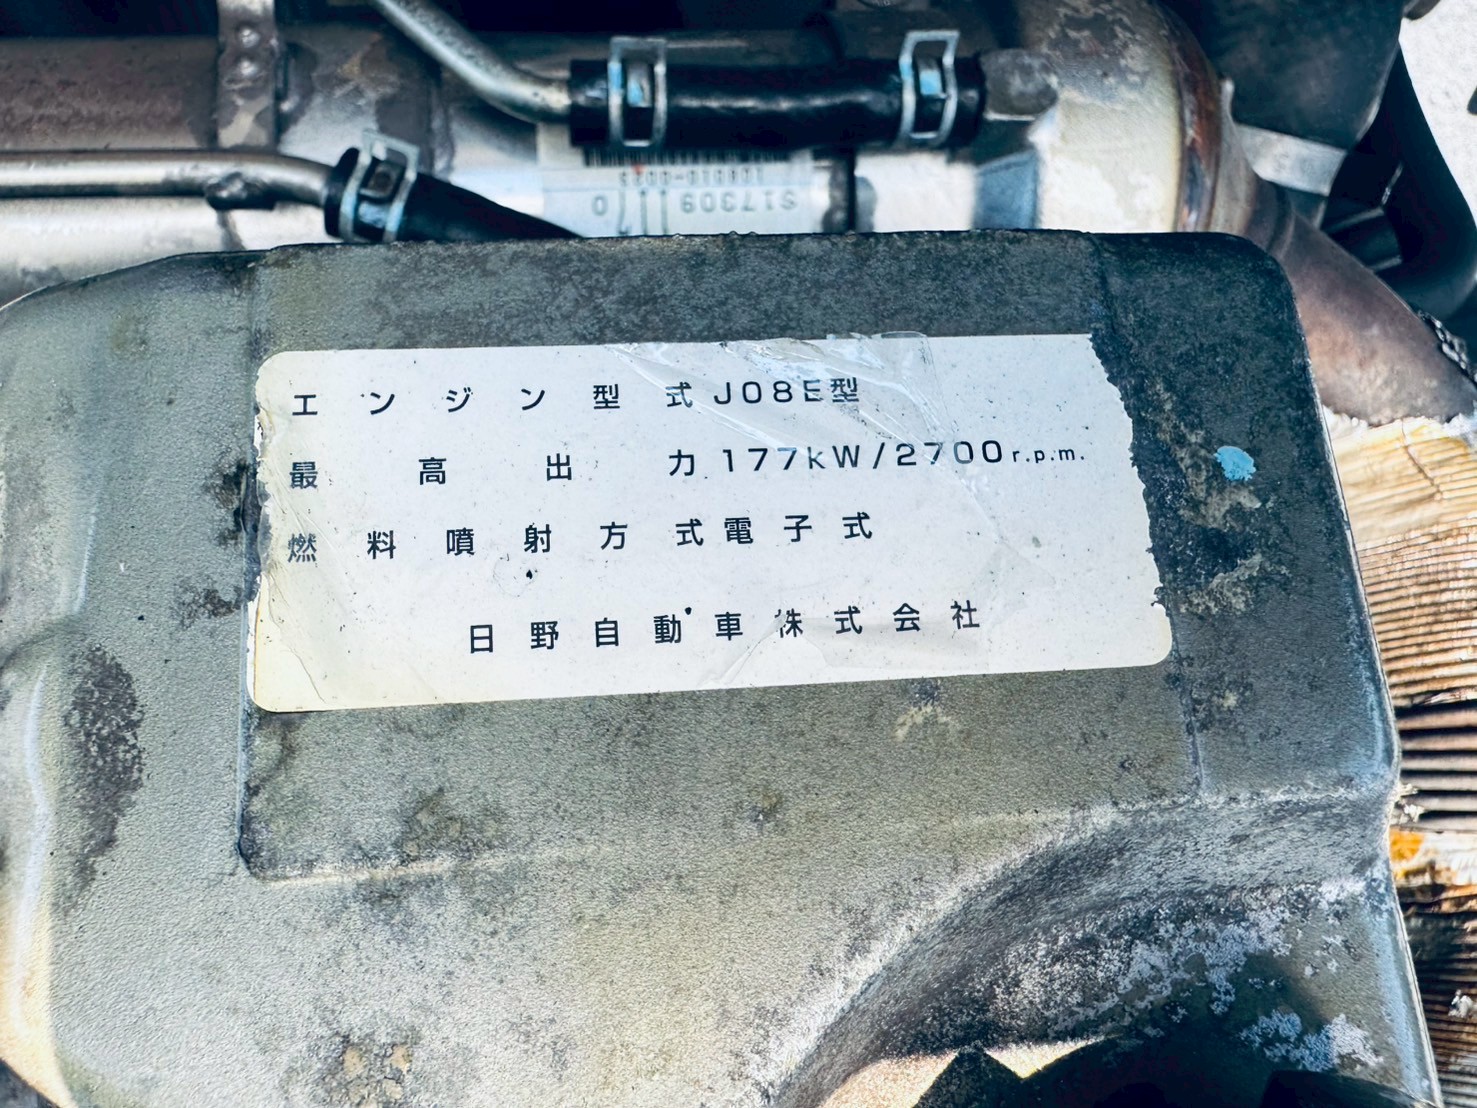 エンジン型式 J08E型
最高出力 177kW/2700r.p.m.
燃料噴射方式 電子式
日野自動車株式会社
S17309